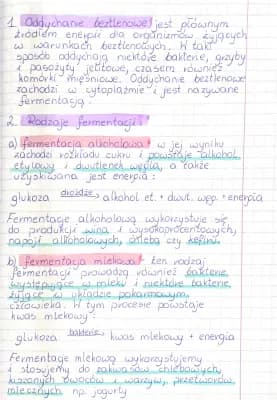 1. Oddychanie beztlenowe jest głównym
źródłem energii dla organizmów żyjących
w warunkach beztlenowych. W taki
sposób oddychają niektóre bakterie, grzyby
i pasożyty jelitowe, czasem również
komórki mięśniowe. Oddychanie beztlenowe
zachodzi w cytoplazmie i jest nazywane
fermentacją.
2. Rodzaje fermentacji:
a) fermentacja alkoholowa - w jej wyniku
zachodzi rozkładu cukru i powstaje alkohol
etylowy i dwutlenek węgla, a także
uzyskiwana jest energia:
glukoza drożdże → alkohol et. + dwut. węg. + energia
Fermentację alkoholową wykorzystuje się
do produkcji wina i wysokoprocentowych
napoji alkoholowych, chleba czy kefiru.
b) fermentacja mlekowa - ten rodzaj
fermentacji prowadzą również bakterie
występujące w mleku i niektóre bakterie
żyjące w układzie pokarmowym
człowieka. W tym procesie powstaje
kwas mlekowy:
glukoza bakterie → kwas mlekowy + energia
Fermentację mlekową wykorzystujemy
i stosujemy do zakwasów chlebowych,
kiszonych owoców i warzyw, przetworów
mlecznych np. jogurty